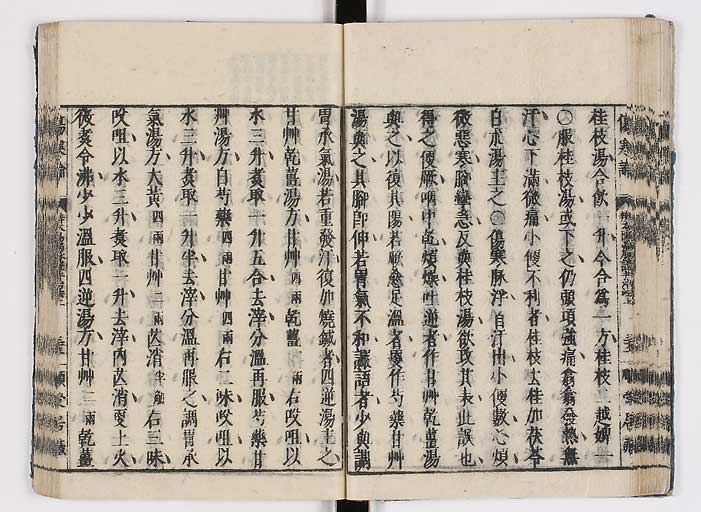 桂枝湯合飲一升今合爲一方桂枝二越婢一
○服桂枝湯或下之仍頭項強痛翕翕發熱無
汗心下滿微痛小便不利者桂枝去桂加茯苓
白朮湯主之○傷寒脉浮自汗出小便數心煩
微惡寒腳攣急反與桂枝湯欲攻其表此誤也
得之便厥咽中乾煩燥吐逆者作甘艸乾薑湯
與之以復其陽若厥愈足溫者更作芍藥甘艸
湯與之其腳卽伸若胃氣不和譫語者少與調
胃承氣湯若重發汗復加燒鍼者四逆湯主之
甘艸乾薑湯方甘艸四兩乾薑二兩右㕮咀以
水三升煮取一升五合去滓分溫再服芍藥甘
艸湯方白芍藥四兩甘艸四兩右二味㕮咀以
水三升煮取一升半去滓分溫再服之調胃承
氣湯方大黃四兩甘艸二兩芒消半觔右三味
㕮咀以水三升煮取一升去滓內芒消更上火
微煮令沸少少溫服四逆湯方甘艸二兩乾薑
傷寒論